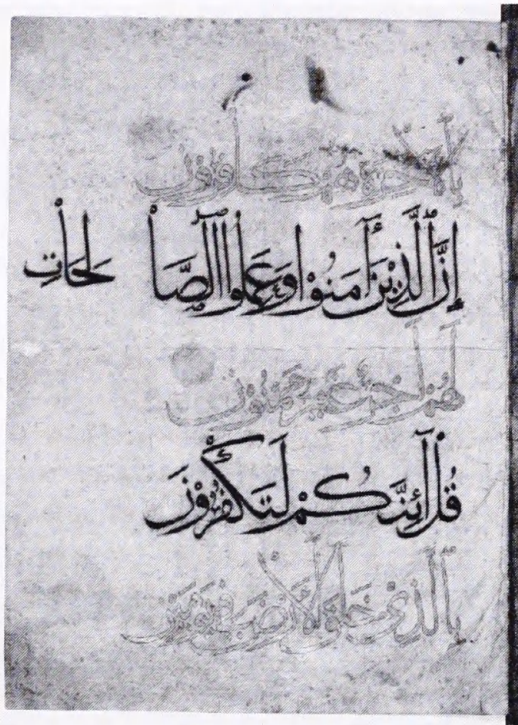 بِالْآخِرَةِ هُمْ كَافِرُونَ
إِنَّ الَّذِيْنَ آمَنُوْا وَعَمِلُوا الصَّا لِحَاتِ
لَهُمْ أَجْرٌ غَيْرُ مَمْنُوْنٍ
قُلْ أَئِنَّكُمْ لَتَكْفُرُوْنَ
بِالَّذِي خَلَقَ الْأَرْضَ فِي يَوْمَيْنِ